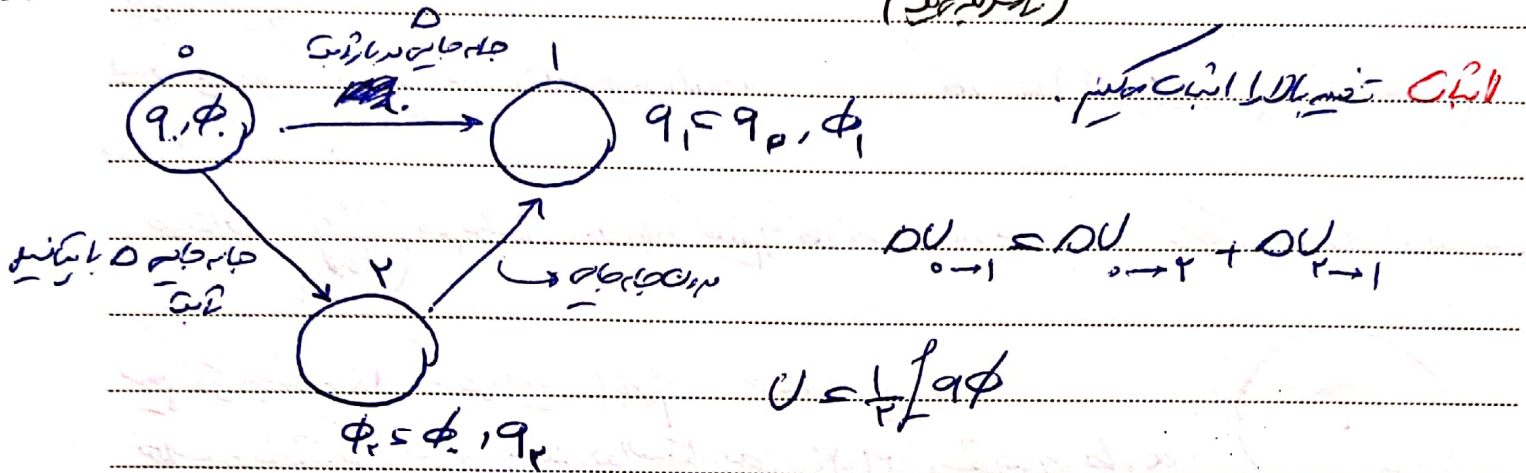 اثبات قضیه بالا را اثبات می‌کنیم.
۰
q₀, φ₀
Δ
جابه‌جایی در بار ثابت
۱
q₁ = q₀, φ₁
جابه‌جایی Δ با پتانسیل ثابت
۲
φ₂ = φ₀, q₂
بدون جابه‌جایی
ΔU₀→₁ = ΔU₀→₂ + ΔU₂→₁
U = ½ ∑ qφ